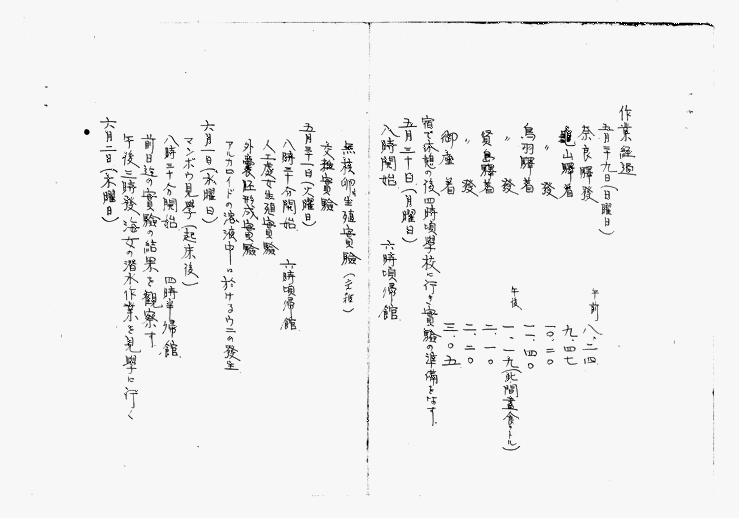 作業経過
五月二十九日(日曜日)
奈良驛發 午前 八.二四
亀山驛着 九.四七
〃 發 一〇.二〇
鳥羽驛着 一一.四〇
〃 發 午後 一.一九(此間晝食ヲトル)
賢島驛着 二.一〇
〃 發 二.二〇
御座着 三.〇五
宿で休憩の後四時頃學校に行き實験の準備をなす.
五月三十日(月曜日)
八時開始 六時頃帰館.
無核卵生殖實驗
交雑實驗
五月三十一日(火曜日)
八時三十分開始. 六時頃帰館.
人工處女生殖實驗
外嚢胚形成實驗
アルカロイドの溶液中に於けるウニの發生
六月一日(水曜日)
マンボウ見學(起床後)
八時三十分開始 四時半帰館.
前日迄の實驗の結果を観察す.
午後三時發 海女の潜水作業を見學に行く
六月二日(木曜日)